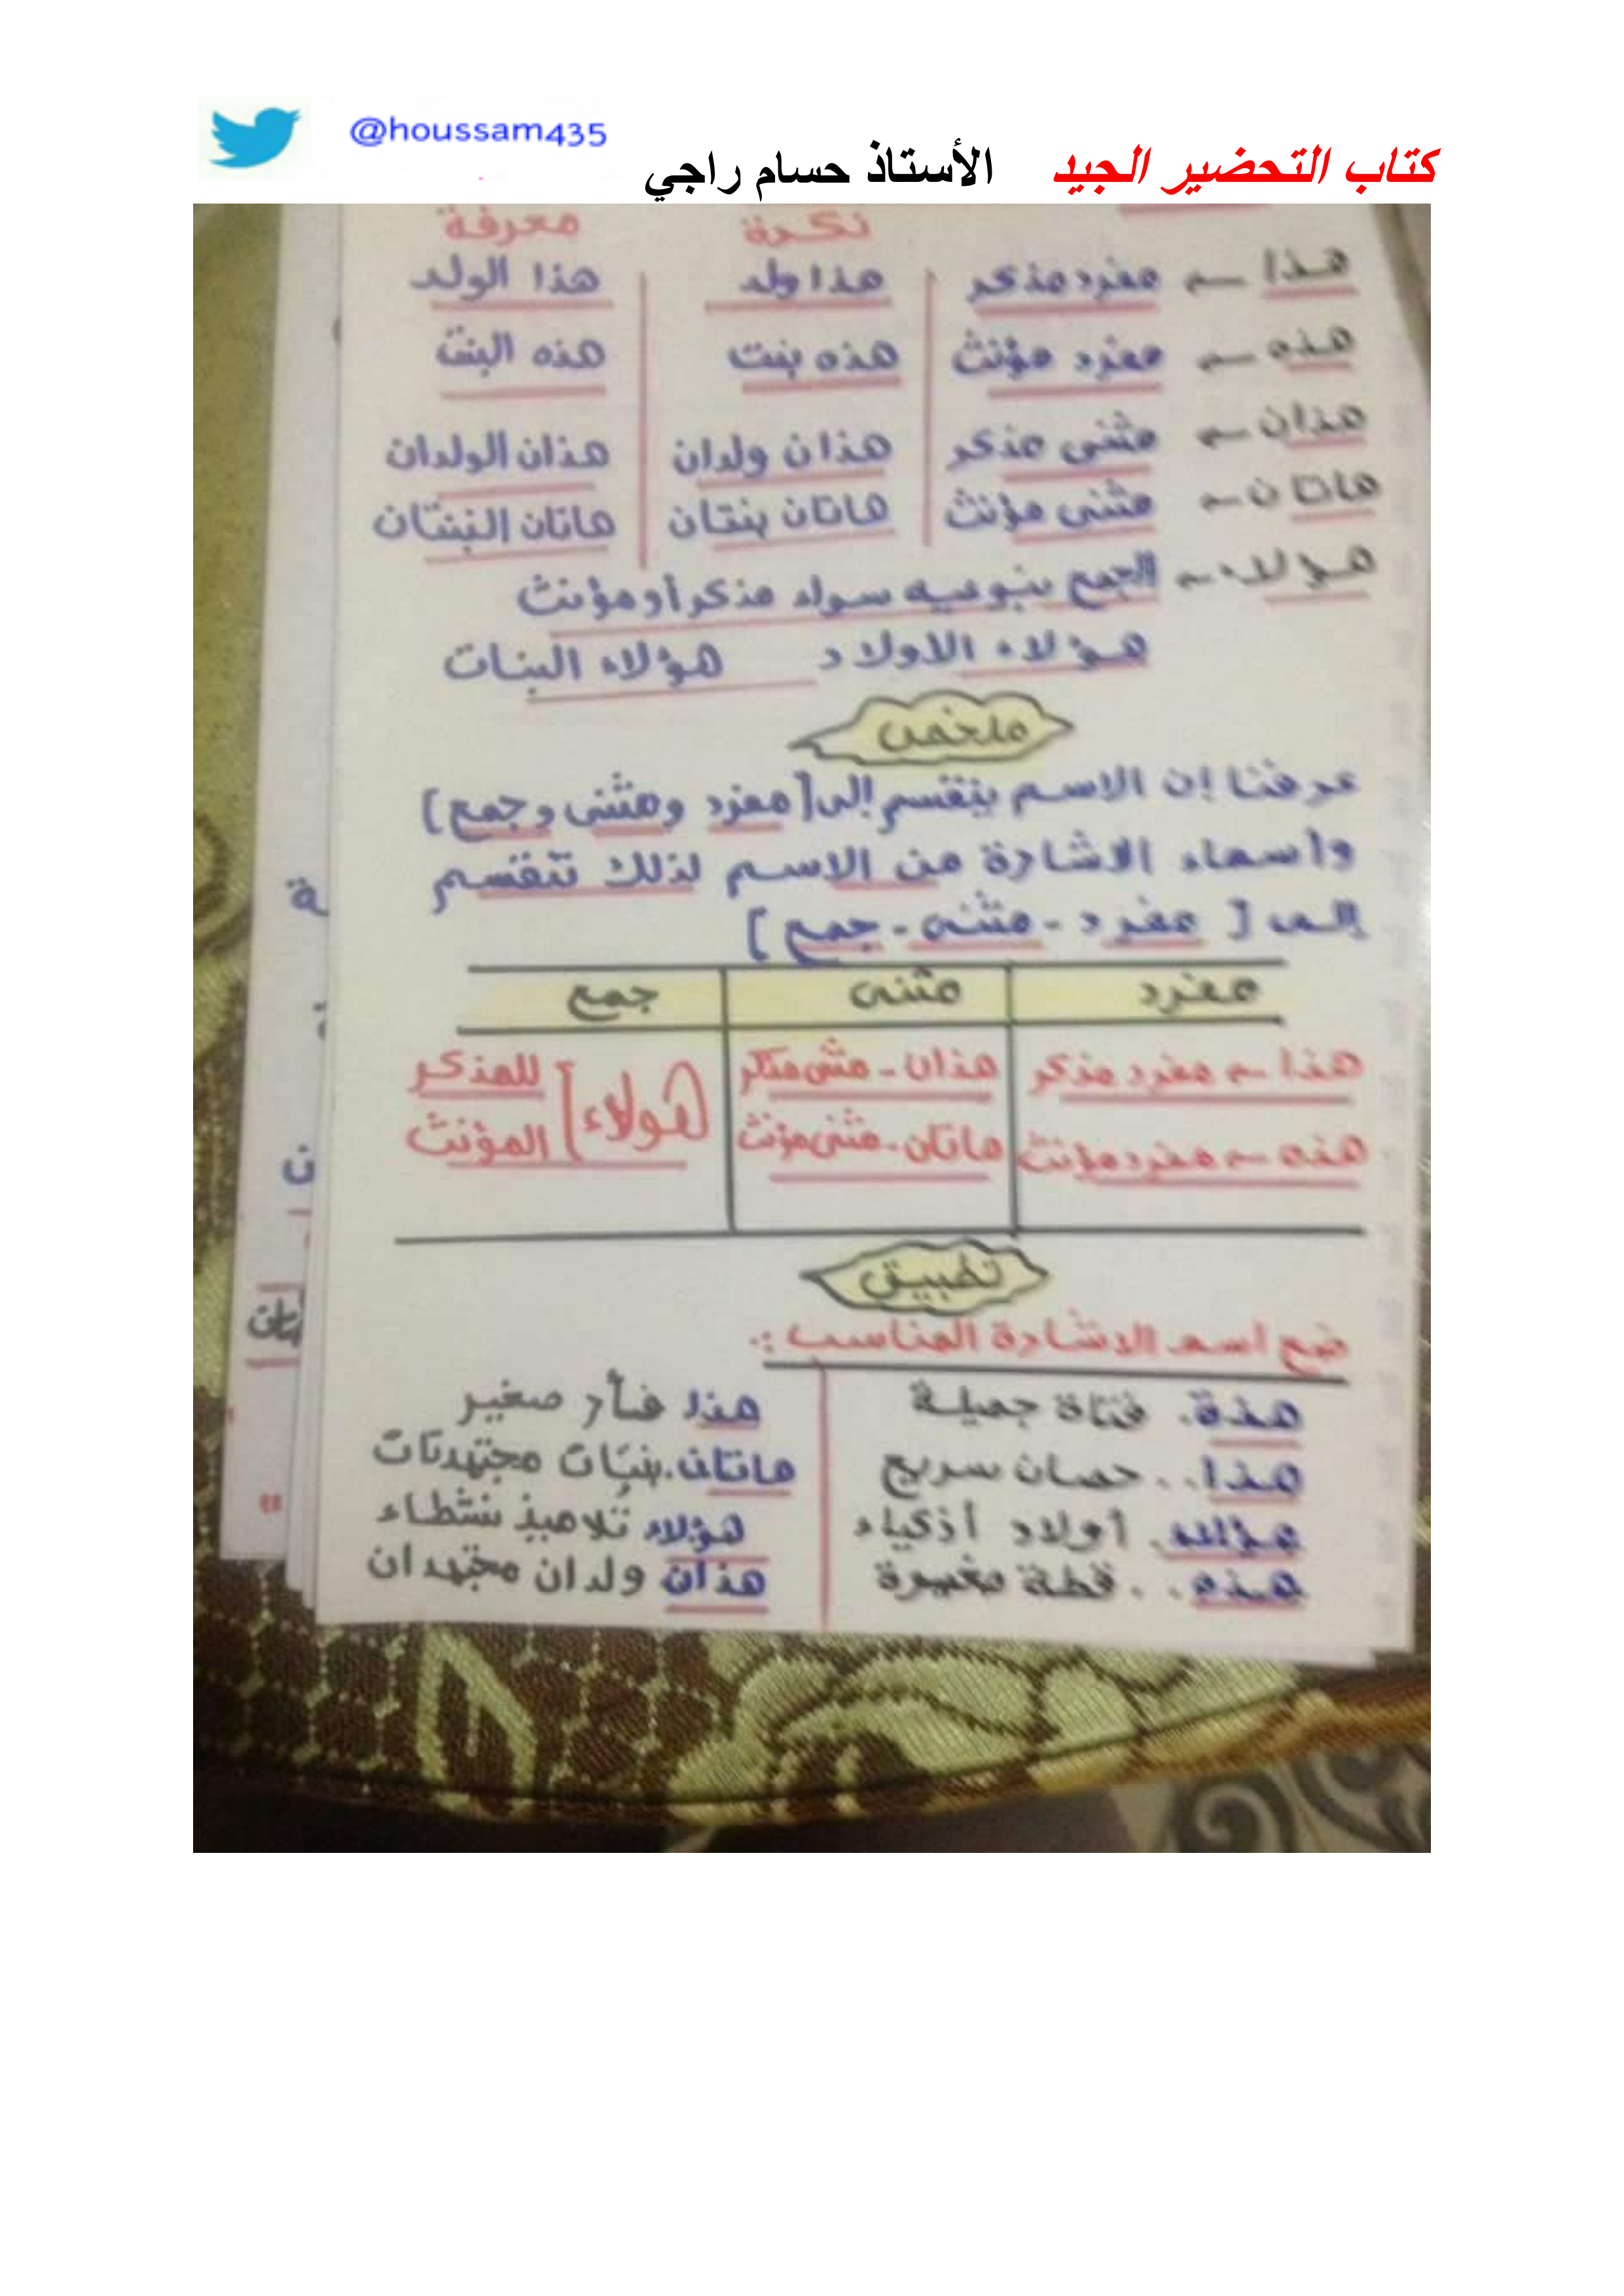 @houssam435
كتاب التحضير الجيد الأستاذ حسام راجي
نكرة معرفة
هذا ← مفرد مذكر هذا ولد هذا الولد
هذه ← مفرد مؤنث هذه بنت هذه البنت
هذان ← مثنى مذكر هذان ولدان هذان الولدان
هاتان ← مثنى مؤنث هاتان بنتان هاتان البنتان
هؤلاء ← الجمع بنوعيه سواء مذكر أو مؤنث
هؤلاء الاولاد هؤلاء البنات
ملخص
عرفنا إن الاسم ينقسم إلى [مفرد ومثنى وجمع]
واسماء الاشارة من الاسم لذلك تنقسم
إلى [ مفرد - مثنى - جمع ]
مفرد مثنى جمع
هذا ← مفرد مذكر هذان - مثنى مذكر هؤلاء [ للمذكر
هذه ← مفرد مؤنث هاتان - مثنى مؤنث المؤنث
تطبيق
ضع اسم الاشارة المناسب :.
هذة. فتاة جميلة هذا فأر صغير
هذا. . حصان سريع هاتان. بنتان مجتهدتان
هؤلاء. أولاد أذكياء هؤلاء تلاميذ نشطاء
هذه. . قطة صغيرة هذان ولدان مجتهدان